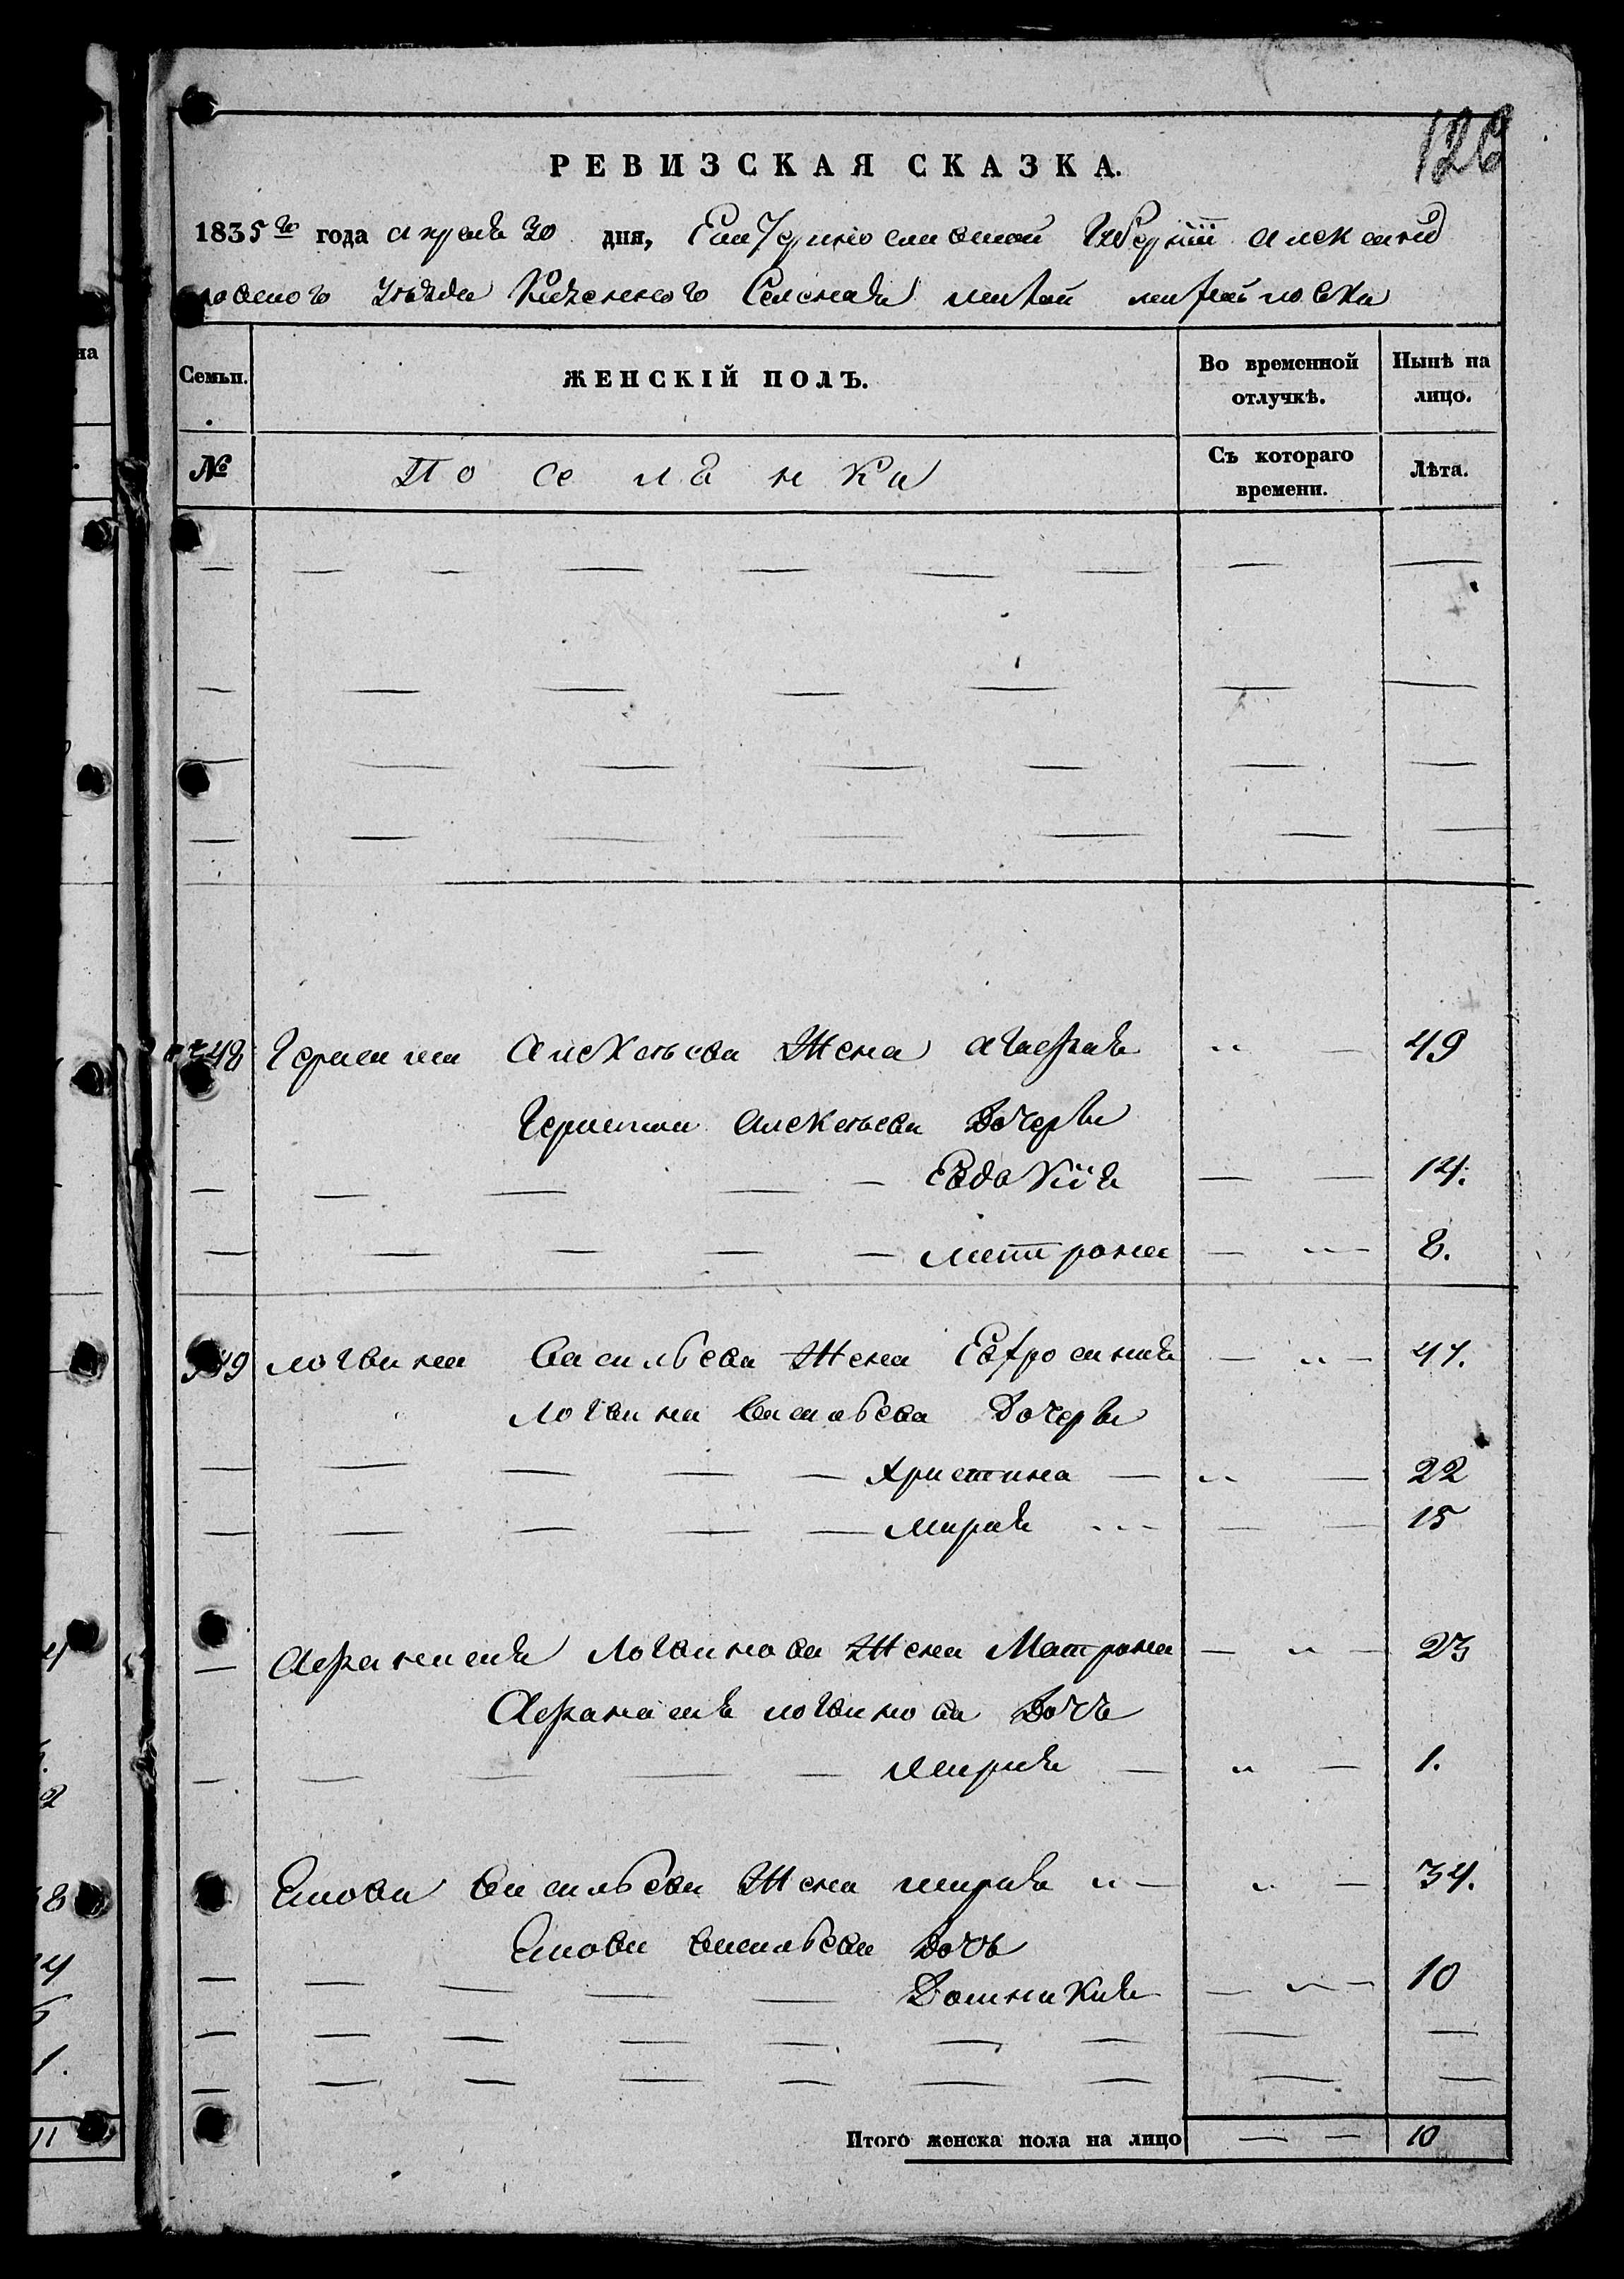 126
РЕВИЗСКАЯ СКАЗКА.
1835го года апреля 30 дня, Екатеринославской Губернiи александ
ровского уезда Казенного Селенiя
Семьи.
ЖЕНСКІЙ ПОЛЪ.
Во временной отлучкѣ.
Нынѣ на лицо.
№
Поселянки
Съ котораго времени.
Лѣта.
348 Герасима Алексеева Жена агафия 49
Герасима алексеева Дочери
Евдокiя 14.
матрона 8.
349 логвина Васильева Жена Евфросиния 47.
Логвина Васильева Дочери
Христина 22
Мария 15
Афанасия Логвинова Жена Матрона 23
Афанасия логвинова Дочь
Мария 1.
Васильева Жена мария 34.
васильева Дочь
Домникия 10
Итого женска пола на лицо 10